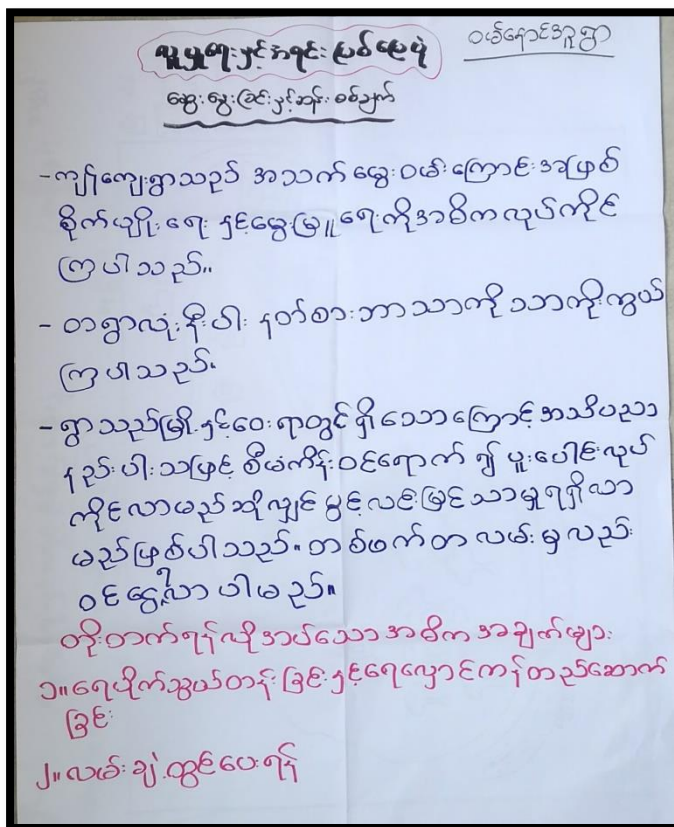 ဝယ်နောင်အူရွာ
လူမှုရေးနှင့်အရင်းပြစ်မြေပုံ
ဆွေးနွေးခြင်းနှင့်ဆန်းစစ်ချက်
-ကျွန်ကျေးရွာသည် အသက်မွေးဝမ်းကြောင်းအဖြစ်
စိုက်ပျိုးရေးနှင့်မွေးမြူရေးကိုအဓိကလုပ်ကိုင်
ကြပါသည်။
- တရွာလုံးနီးပါး နတ်စားဘာသာကိုသာကိုးကွယ်
ကြပါသည်။
-ရွာသည်မြို့နှင့်ဝေးရာတွင်ရှိသောကြောင့်အသိပညာ
နည်းပါးသဖြင့် စီမံကိန်းဝင်ရောက်၍ ပူးပေါင်းလုပ်
ကိုင်လာမည်ဆိုလျှင်ပွင့်လင်းမြင်သာမှုရရှိလာ
မည်ဖြစ်ပါသည်။ တစ်ဖက်တလမ်းမှလည်း
ဝင်ငွေရှိလာပါမည်။
တိုးတက်ရန်လိုအပ်သောအဓိကအချက်များ
၁။ရေပိုက်သွယ်တန်းခြင်းနှင့်ရေလှောင်ကန်တည်ဆောက်
ခြင်း
၂။လမ်းချဲ့ထွင်ပေးရန်